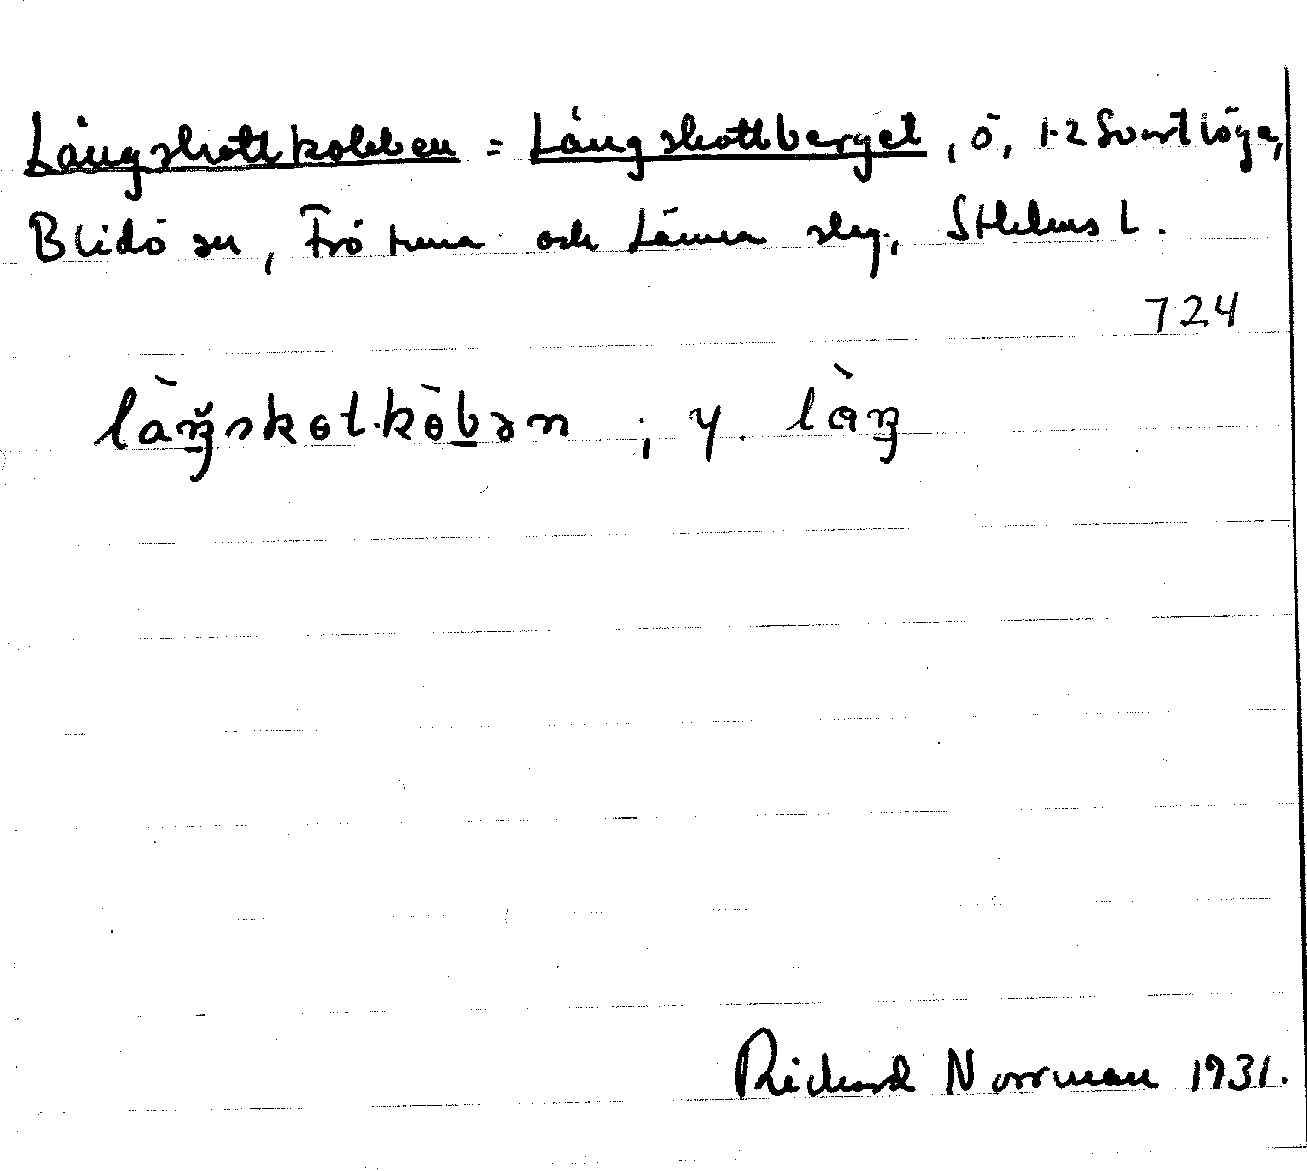 Långskottkobben = Långskottberget, ö, 1-2 Svartlöga,
Blidö sn, Frötuna och Länna slg., Sthlms l.
724
làŋskɵt.kɵ̀bən ; y. làŋ
Richard Norrman 1931.